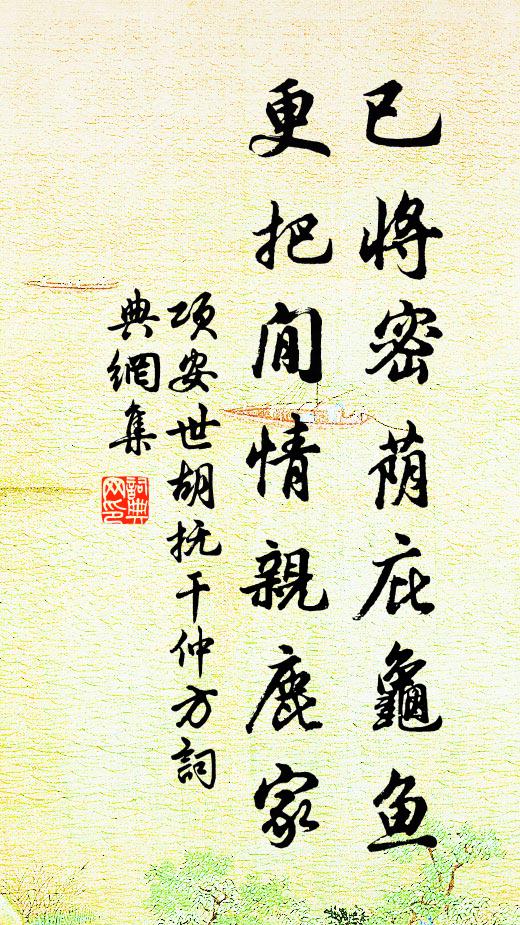 已將密蔭庇龜魚
更把閒情親鹿家
项安世胡抚干仲方詞
典網集
詞典網印